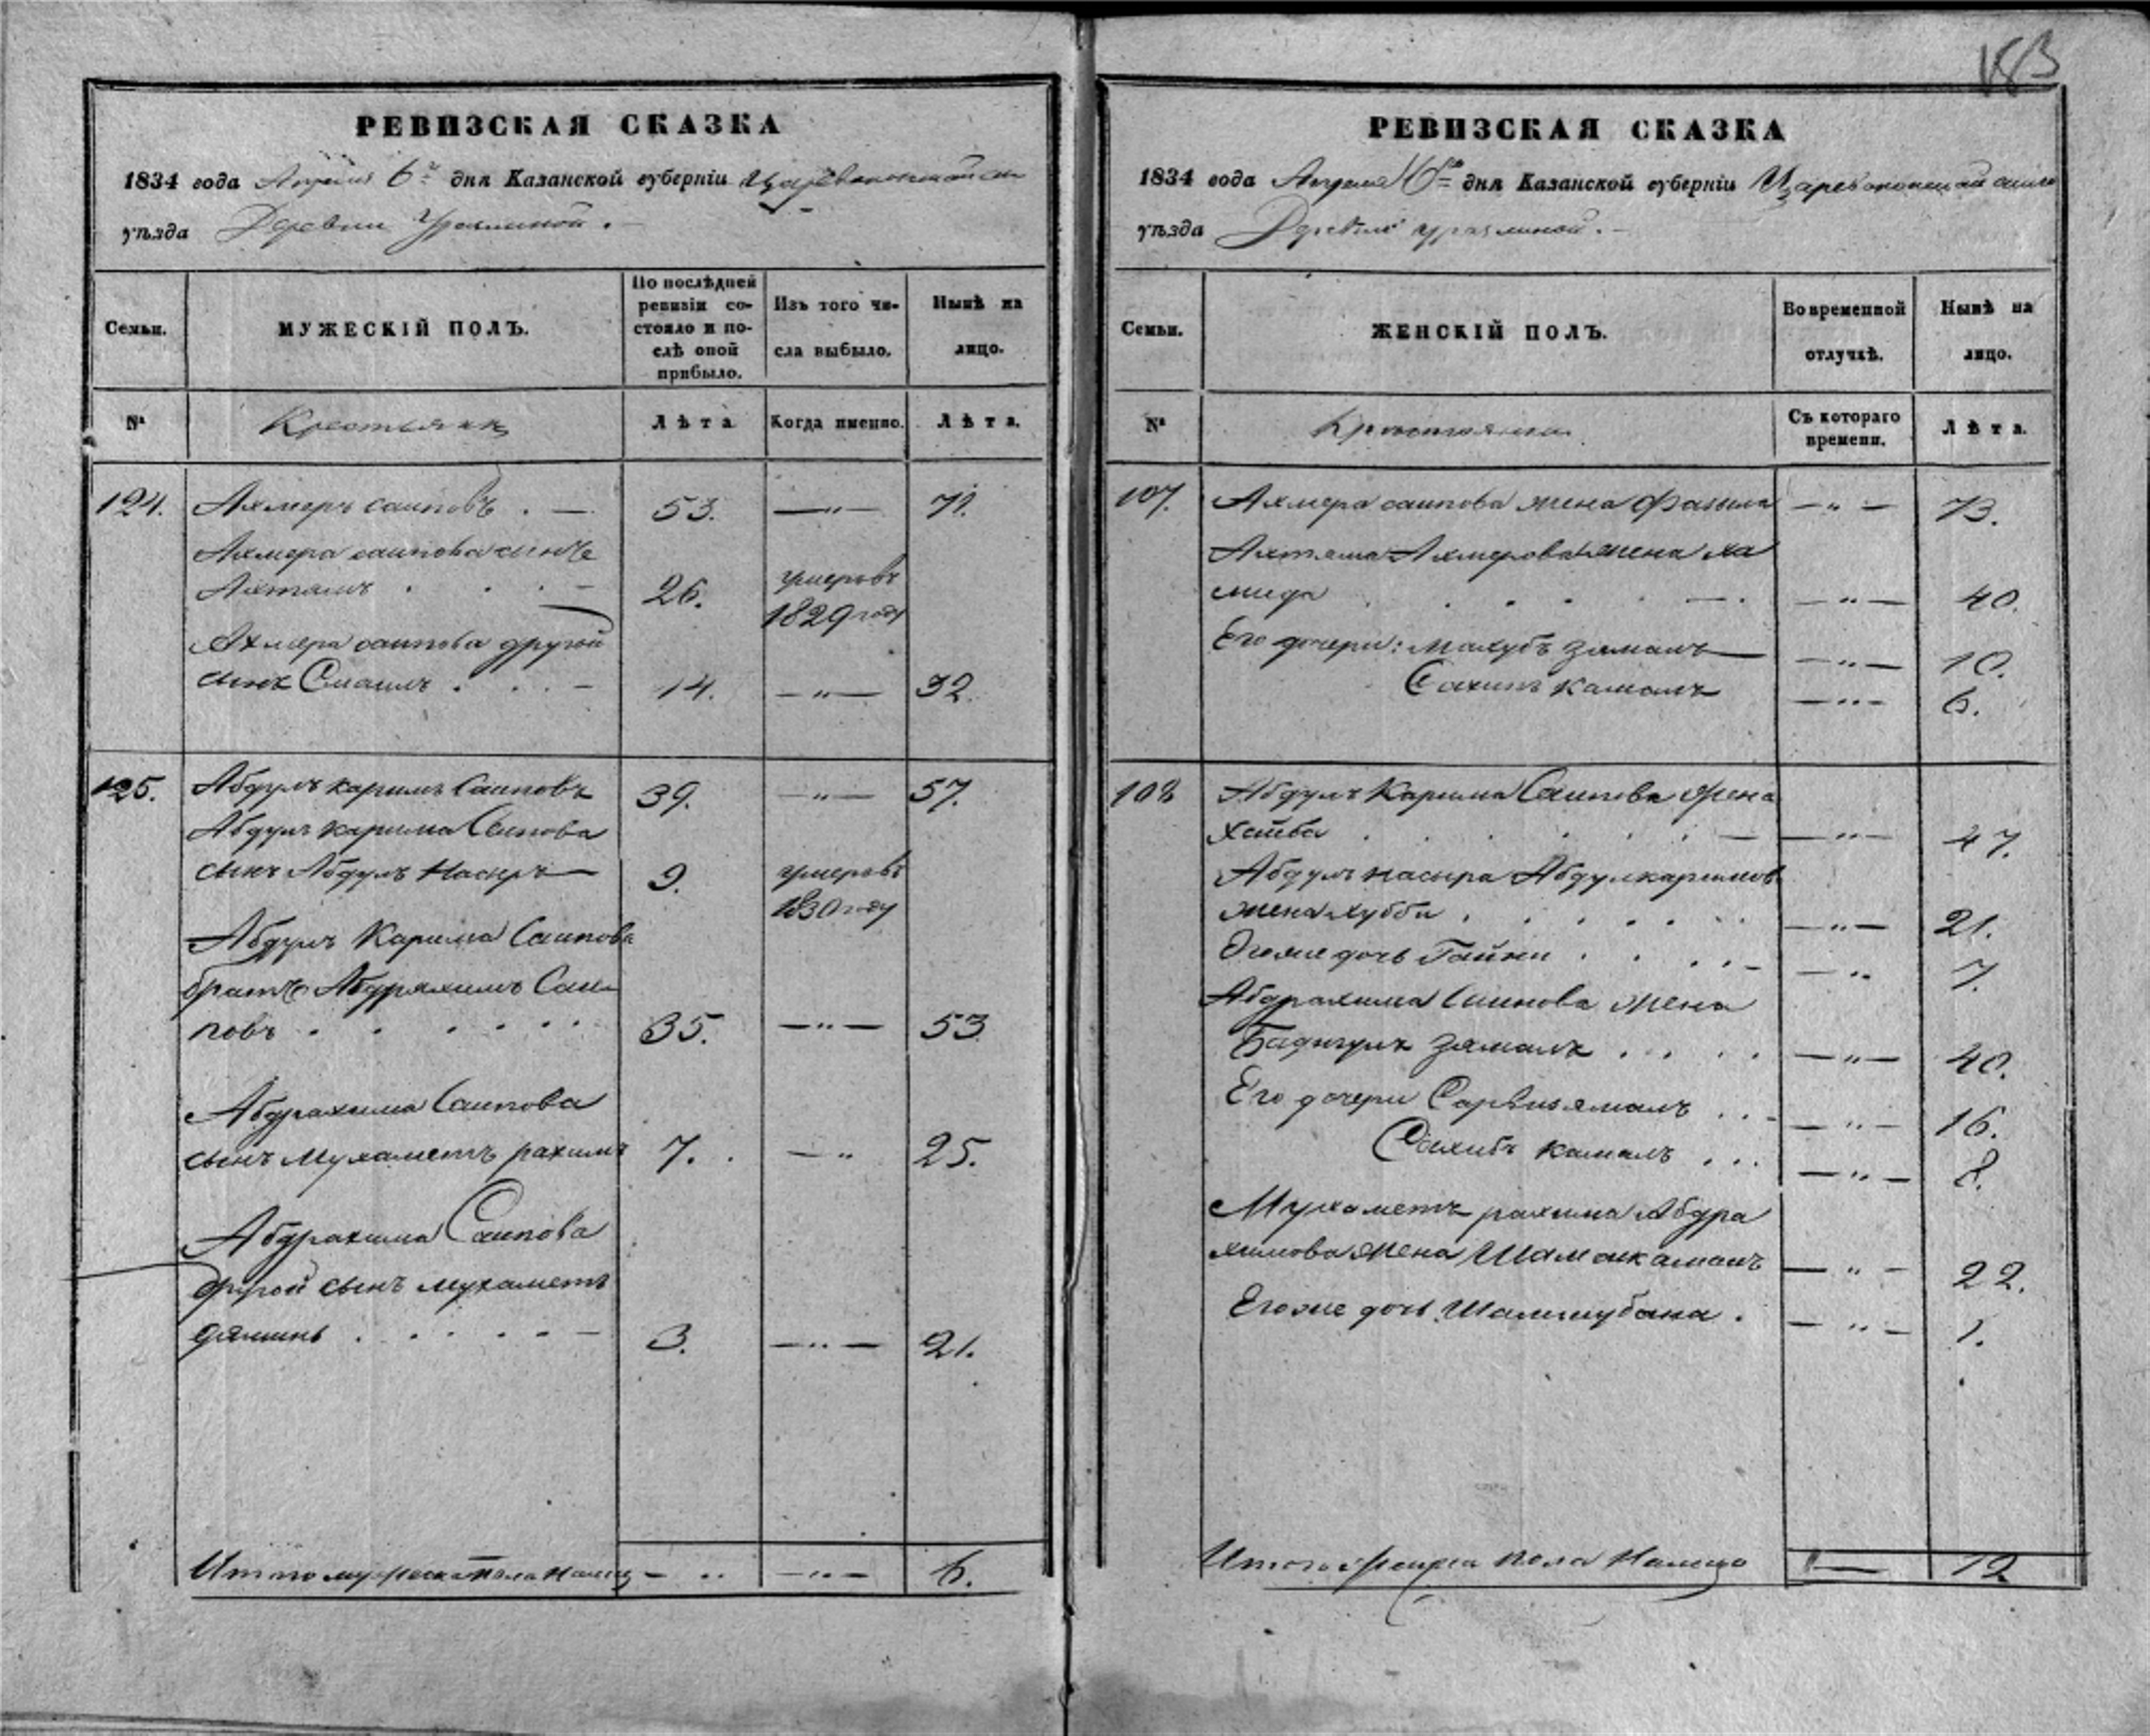 183
РЕВИЗСКАЯ СКАЗКА
1834 года Апреля 6го дня Казанской губерніи Царевококшайскаго
уѣзда Деревни Уразлиной.
Семьи.
МУЖЕСКІЙ ПОЛЪ.
По послѣдней ревизіи состояло и послѣ оной прибыло.
Изъ того числа выбыло.
Нынѣ на лицо.
№
Крестьянъ
Лѣта
Когда именно.
Лѣта.
124. Ахмеръ саиповъ . — 53. —"— 71.
Ахмера саипова сынъ
Ахтямъ . . . — 26. умеръ въ 1829 году
Ахмера саипова другой
сынъ Смаилъ . . . — 14. —"— 32.
125. Абдулъ каримъ Саиповъ 39. —"— 57.
Абдулъ карима Саипова
сынъ Абдулъ Насыръ — 9. умеръ въ 1830 году
Абдулъ Карима Саипова
братъ Абдряхимъ Саи
повъ . . . . . . 35. —"— 53
Абдрахима Саипова
сынъ Мухаметъ рахимъ 7. . — " 25.
Абдрахима Саипова
другой сынъ мухаметъ
дяминъ . . . . . — 3. —"— 21.
Итого мужеска пола налицо — " —"— 6.
РЕВИЗСКАЯ СКАЗКА
1834 года Апреля 6го дня Казанской губерніи Царевококшайскаго
уѣзда Деревни уразлиной. —
Семьи.
ЖЕНСКІЙ ПОЛЪ.
Во временной отлучкѣ.
Нынѣ на лицо.
№
Съ котораго времени.
Лѣта.
107. Ахмера саипова жена Фазыла —"— 73.
Ахтяма Ахмерова жена ха
мида . . . . . — . —"— 40.
Его дочери: Махубъ зямалъ — —"— 10.
Сахипъ камалъ —"— 6.
108 Абдулъ Карима Саипова жена
Хатба . . . . . . — —"— 47.
Абдулъ насыра Абдулкаримов
жена хубби . . . . . . —"— 21.
Ягоже дочь Гайни . . . . — — " 7.
Абдрахима Саипова жена
Бадигулъ зямалъ . . . . —"— 40.
Его дочери Сарвизямалъ . . — —"— 16.
Сахибъ камалъ . . . —"— 8.
Мухаметъ рахима Абдра
химова жена Шамсикамалъ —"— 22.
Егоже дочь Шамшубана . —"— 1.
Итого женска пола налицо — 12